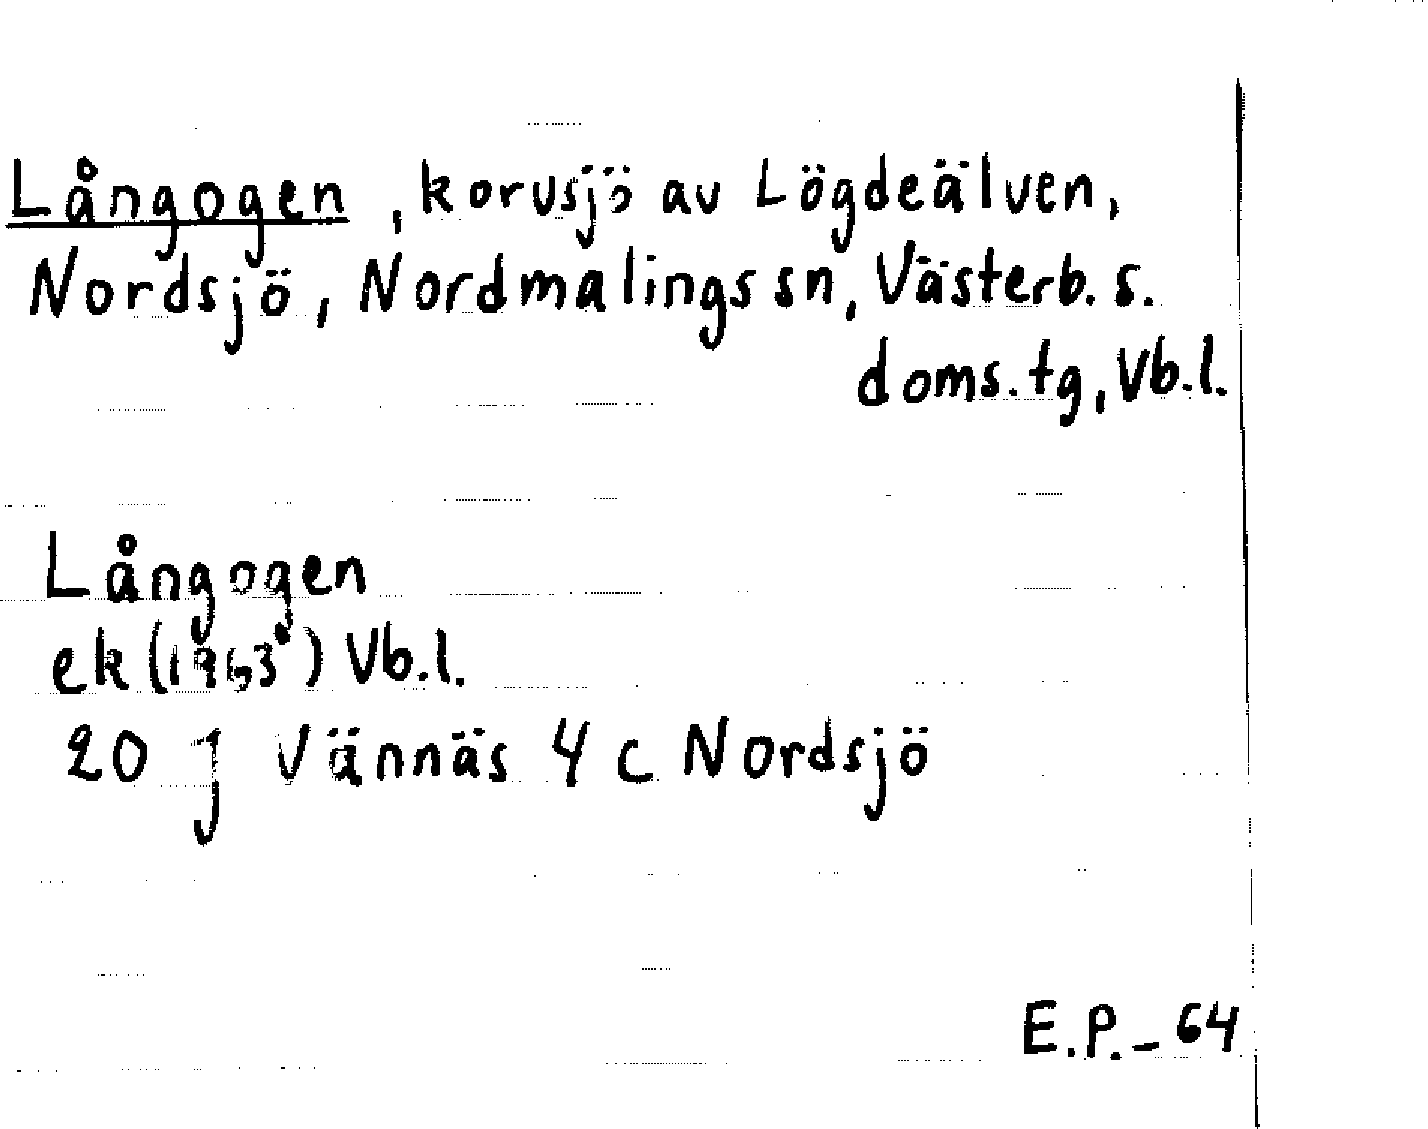 Långogen, korvsjö av Lögdeälven,
Nordsjö, Nordmalings sn, Västerb. s.
doms. tg, Vb.l.
Långogen
ek (1963) Vb.l.
20 J Vännäs 4 c Nordsjö
E.P.-64